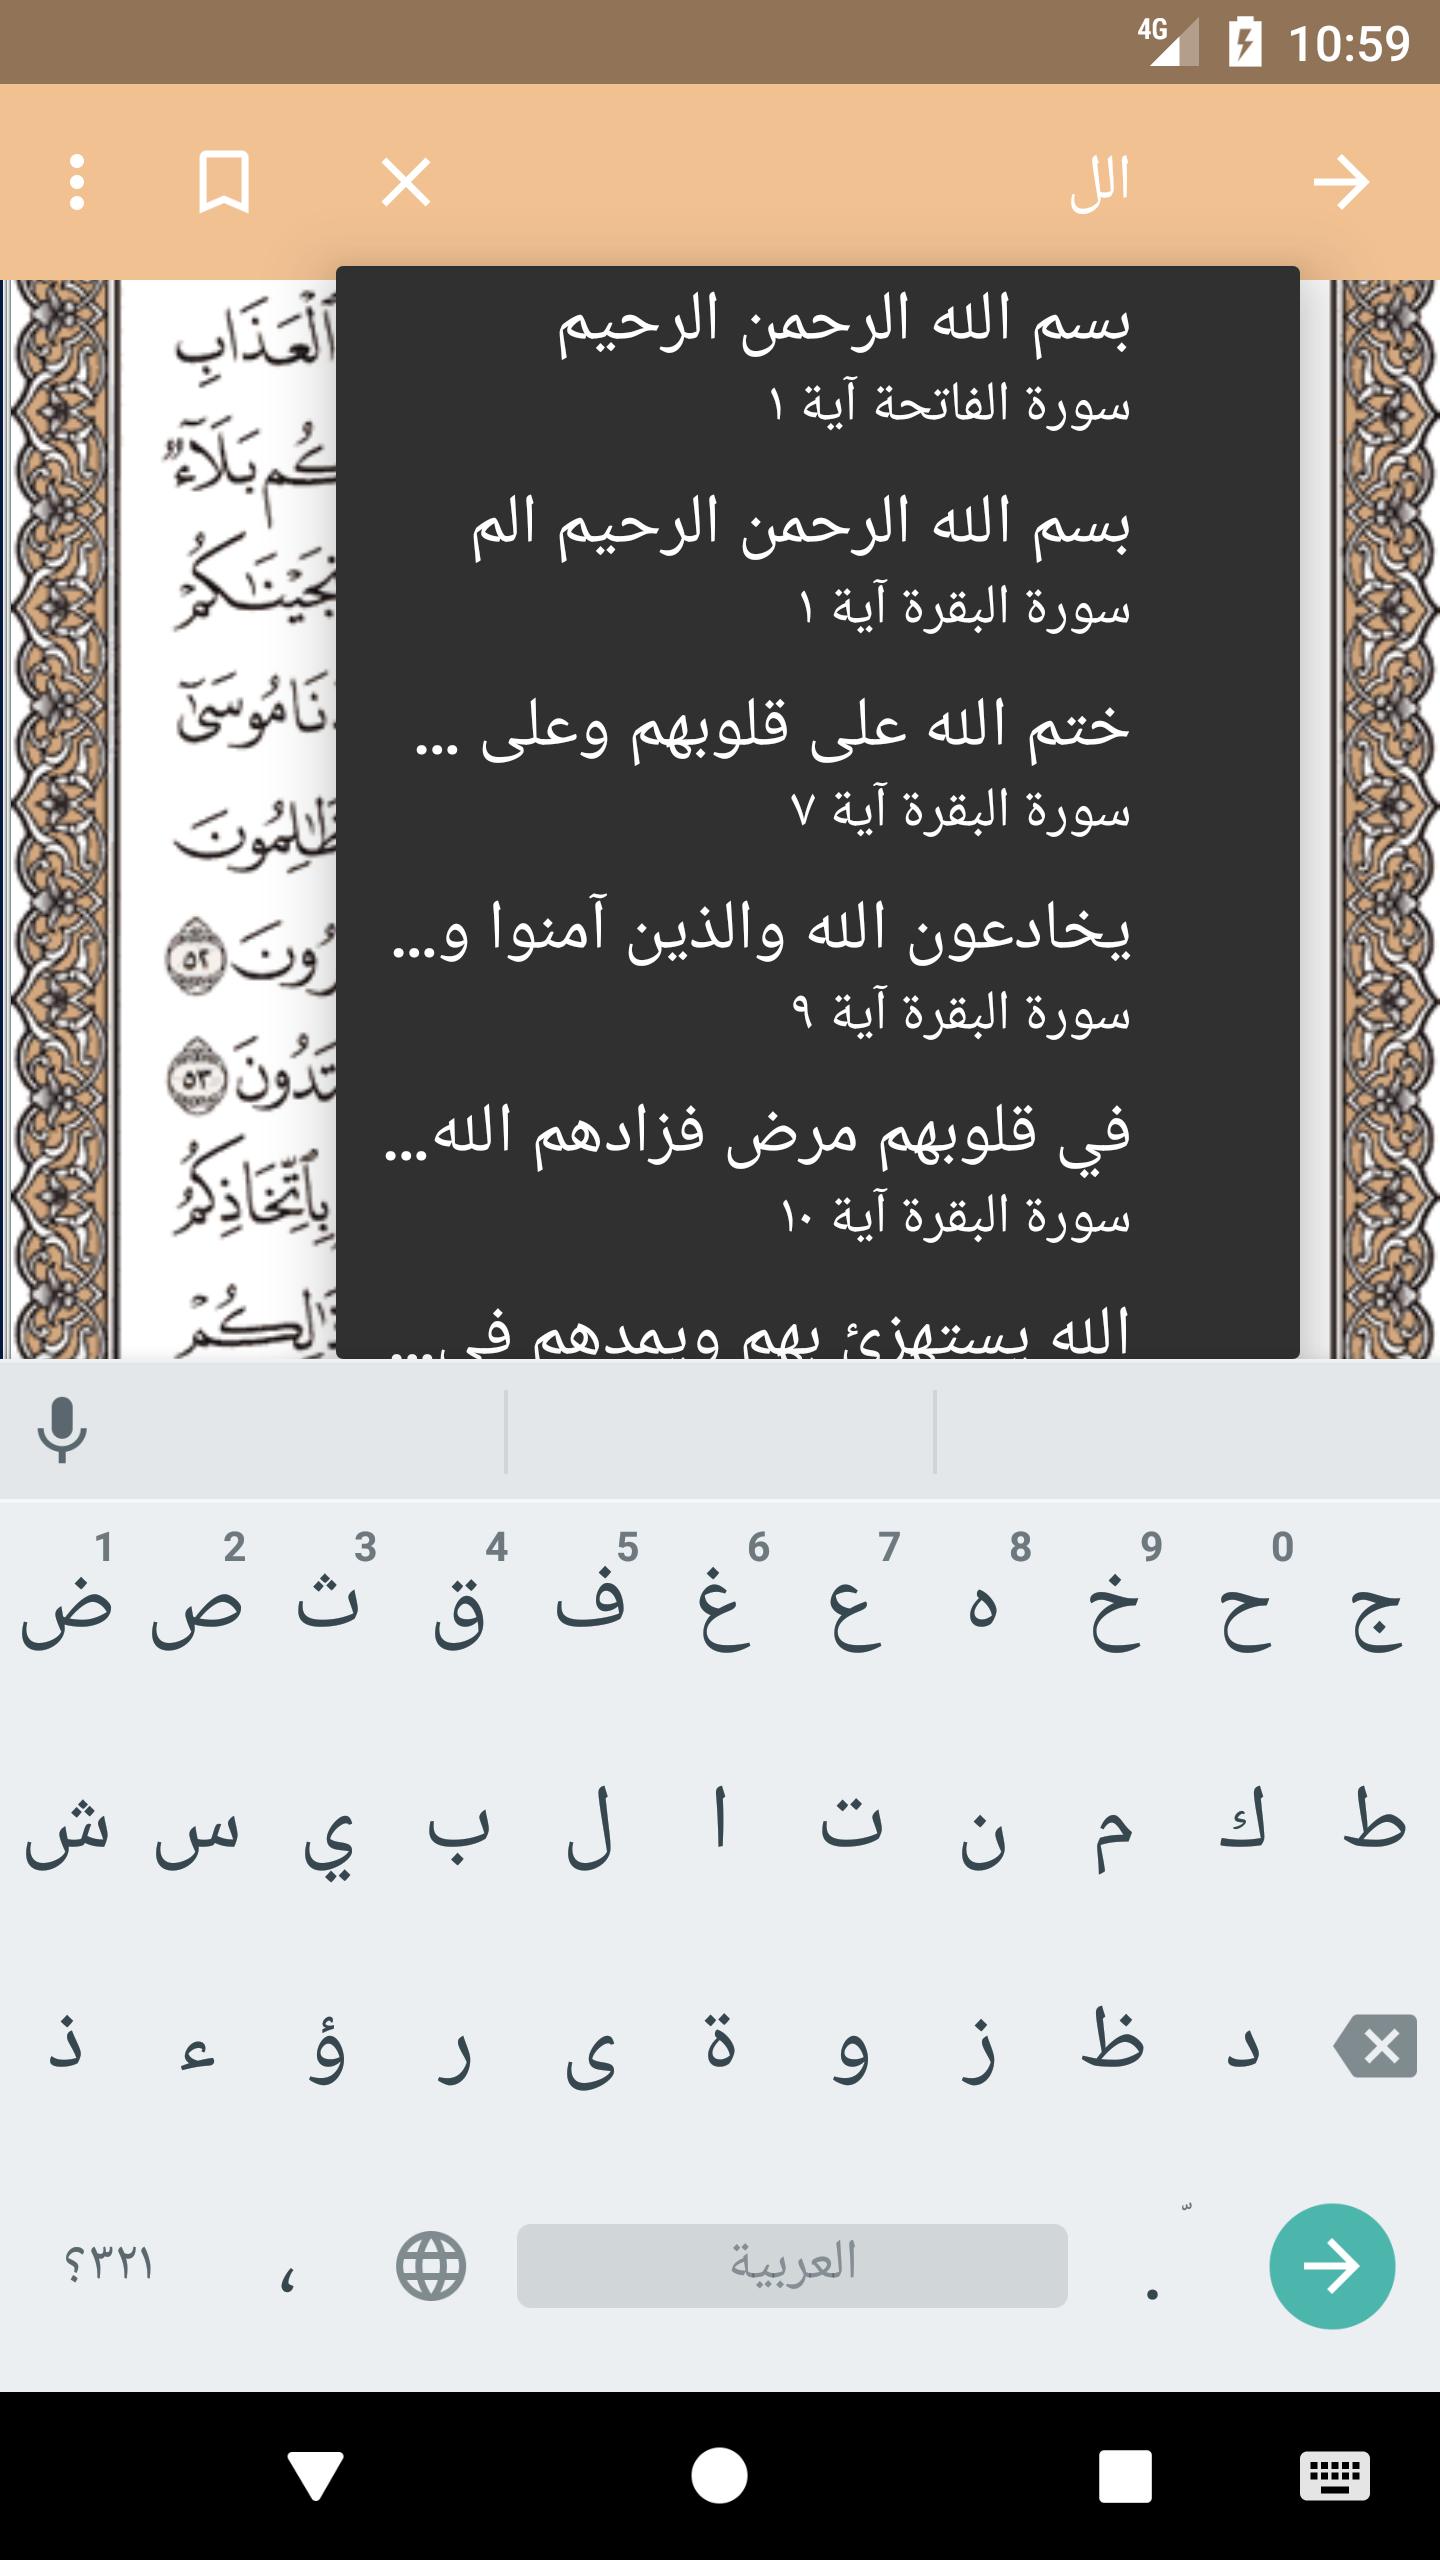 4G 10:59
الل
بسم الله الرحمن الرحيم
سورة الفاتحة آية ١
بسم الله الرحمن الرحيم الم
سورة البقرة آية ١
ختم الله على قلوبهم وعلى ...
سورة البقرة آية ٧
يخادعون الله والذين آمنوا و...
سورة البقرة آية ٩
في قلوبهم مرض فزادهم الله...
سورة البقرة آية ١٠
الله يستهزئ بهم ويمدهم في...
ٱلْعَذَابِ
كُم بَلَآءٌ
مُوسَىٰٓ
٥٢
٥٣
بِٱتِّخَاذِكُمُ
1 2 3 4 5 6 7 8 9 0
ض ص ث ق ف غ ع ه خ ح ج
ش س ي ب ل ا ت ن م ك ط
ذ ء ؤ ر ى ة و ز ظ د
٣٢١؟ ، العربية .